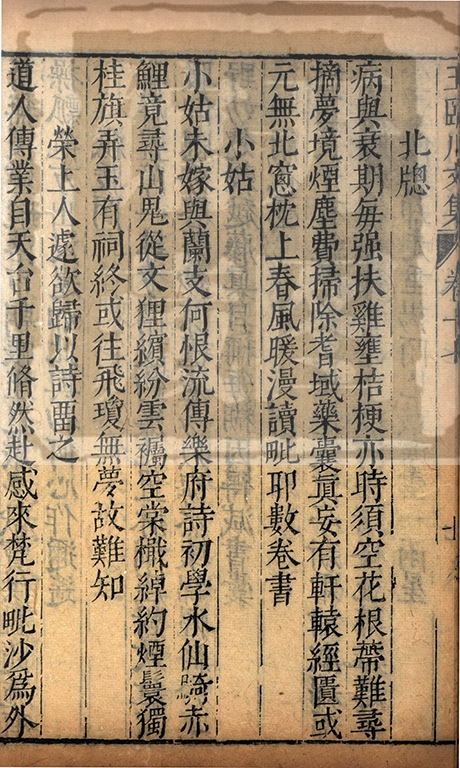 王臨川文集 卷十七 十
北牕
病與衰期每强扶雞壅桔梗亦時須空花根蔕難尋
摘夢境煙塵費掃除耆域藥囊真妄有軒轅經匱或
元無北窻枕上春風暖漫讀毗耶數卷書
小姑
小姑未嫁與蘭支何恨流傳樂府詩初學水仙騎赤
鯉竟尋山鬼從文狸繽紛雲襹空棠檝綽約煙鬟獨
桂旗弄玉有祠終或往飛瓊無夢故難知
榮上人遽欲歸以詩畱之
道人傳業自天台千里翛然赴感來梵行毗沙爲外